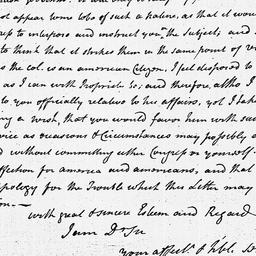 not appear some lots of such a nature, as that it wou
to interpose and instruct you the Subject; and
to think that it strikes them in the same point of v
as the col. is an american Citizen, I feel disposed to
as I can with Propriety So; and therefore, altho I
to you officially relative to his affairs, yet I take
a wish, that you would favor him with such
vice as reasons & Circumstances may possibly a
d without committing either Congress or yourself
ffection for america and americans, and that
apology for the Trouble which this Letter may
ion.—
with great & sincere Esteem and Regard
I am Dr Sir
your affect. & hble Se